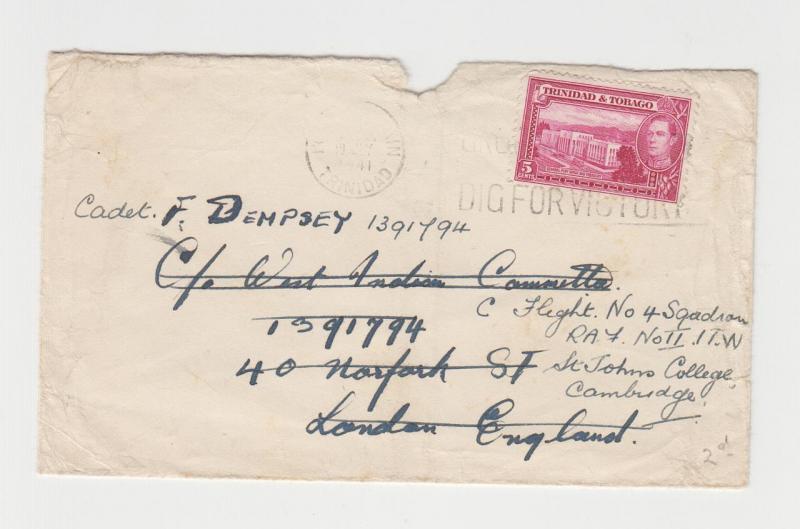 TRINIDAD & TOBAGO
5
CENTS
TRINIDAD
DIG FOR VICTORY
Cadet. F. DEMPSEY 1391794
C/o West Indian Committe.
C Flight. No 4 Squadron
1391794
RAF. No II. I T.W
40 Norfork ST
St Johns College,
Cambridge
London England.
2d